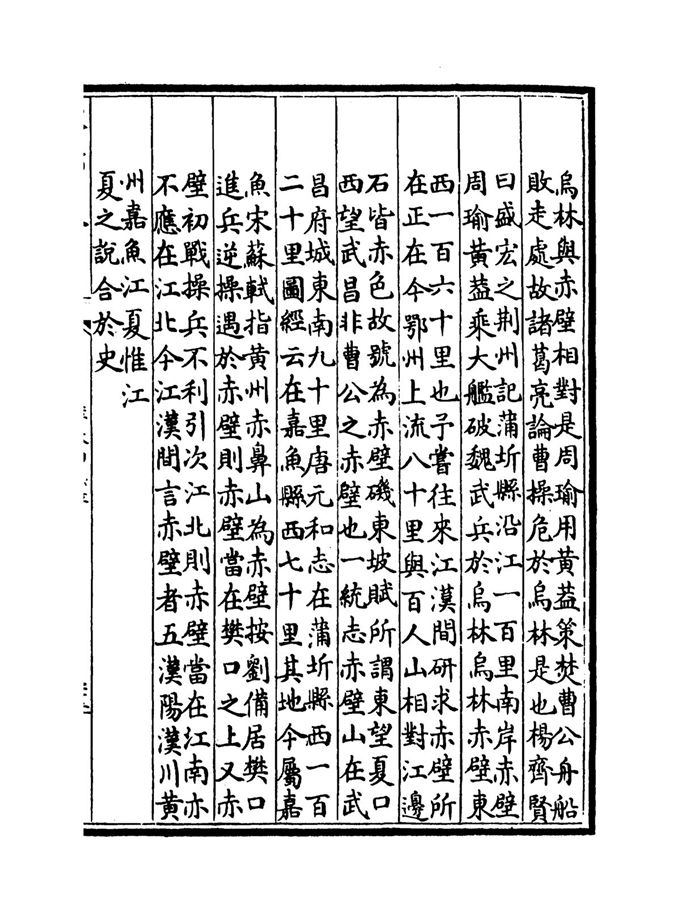 烏林與赤壁相對是周瑜用黃葢策焚曹公舟船
敗走處故諸葛亮論曹操危於烏林是也楊齊賢
曰盛宏之荆州記蒲圻縣沿江一百里南岸赤壁
周瑜黃葢乘大艦破魏武兵於烏林烏林赤壁東
西一百六十里也予嘗往來江漢間研求赤壁所
在正在今鄂州上流八十里與百人山相對江邊
石皆赤色故號為赤壁磯東坡賦所謂東望夏口
西望武昌非曹公之赤壁也一統志赤壁山在武
昌府城東南九十里唐元和志在蒲圻縣西一百
二十里圖經云在嘉魚縣西七十里其地今屬嘉
魚宋蘇軾指黃州赤鼻山為赤壁按劉備居樊口
進兵逆操遇於赤壁則赤壁當在樊口之上又赤
壁初戰操兵不利引次江北則赤壁當在江南亦
不應在江北今江漢間言赤壁者五漢陽漢川黃
州嘉魚江夏惟江
夏之說合於史